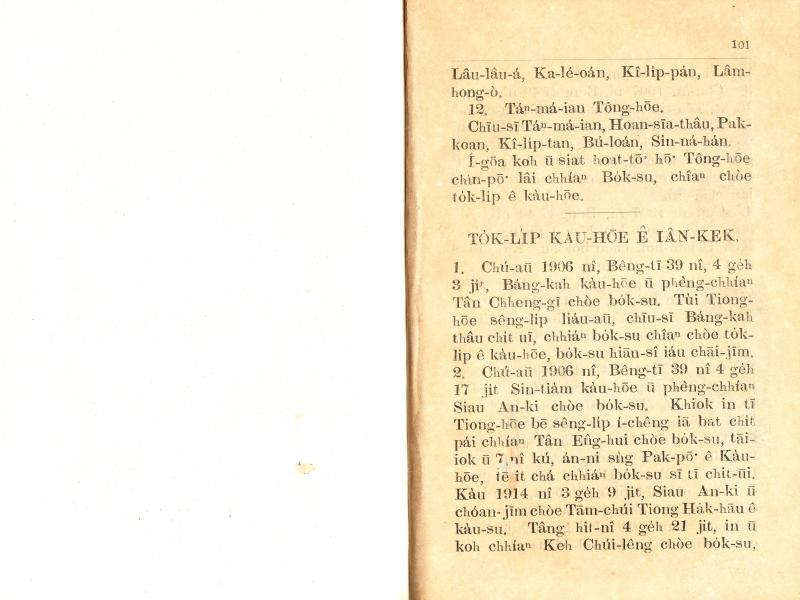 101
Lâu-lâu-á, Ka-lé-oán, Kî-li̍p-pán, Lâm-
hong-ò.
12. Tán-má-ian Tông-hōe.
Chīu-sī Táⁿ-má-ian, Hoan-sīa-thâu, Pak-
koan, Kî-li̍p-tan, Bú-loán, Sin-ná-hán.
Í-gōa koh ū siat hoat-tō͘ hō͘ Tông-hōe
chìn-pō͘ lâi chhíaⁿ Bo̍k-su, chîaⁿ chòe
to̍k-li̍p ê kàu-hōe.
TO̍K-LI̍P KÀU-HŌE Ê IÂN-KEK.
1. Chú-aū 1906 nî, Bêng-tī 39 nî, 4 ge̍h
3 ji̍t, Báng-kah kàu-hōe ū phèng-chhíaⁿ
Tân Chheng-gī chòe bo̍k-su. Tùi Tiong-
hōe sêng-li̍p liáu-aū, chīu-sī Báng-kah
thâu chi̍t uī, chhiáⁿ bo̍k-su chîaⁿ chòe to̍k-
li̍p ê kàu-hōe, bo̍k-su hiān-sî iáu chāi-jīm.
2. Chú-aū 1906 nî, Bêng-tī 39 nî 4 ge̍h
17 ji̍t Sin-tiàm kàu-hōe ū phèng-chhíaⁿ
Siau An-ki chòe bo̍k-su. Khiok in tī
Tiong-hōe bē sêng-li̍p í-chêng iā bat chi̍t
pái chhíaⁿ Tân Eng-hui chòe bo̍k-su, tāi-
iok ū 7 nî kú, án-ni sǹg Pak-pō͘ ê Kàu-
hōe, tē it chá chhiáⁿ bo̍k-su sī tī chit-ūi.
Kàu 1914 nî 3 ge̍h 9 ji̍t, Siau An-ki ū
chóan-jīm chòe Tām-chúi Tiong Ha̍k-hāu ê
kàu-su. Tâng hit-nî 4 ge̍h 21 ji̍t, in ū
koh chhíaⁿ Keh Chúi-lêng chòe bo̍k-su,